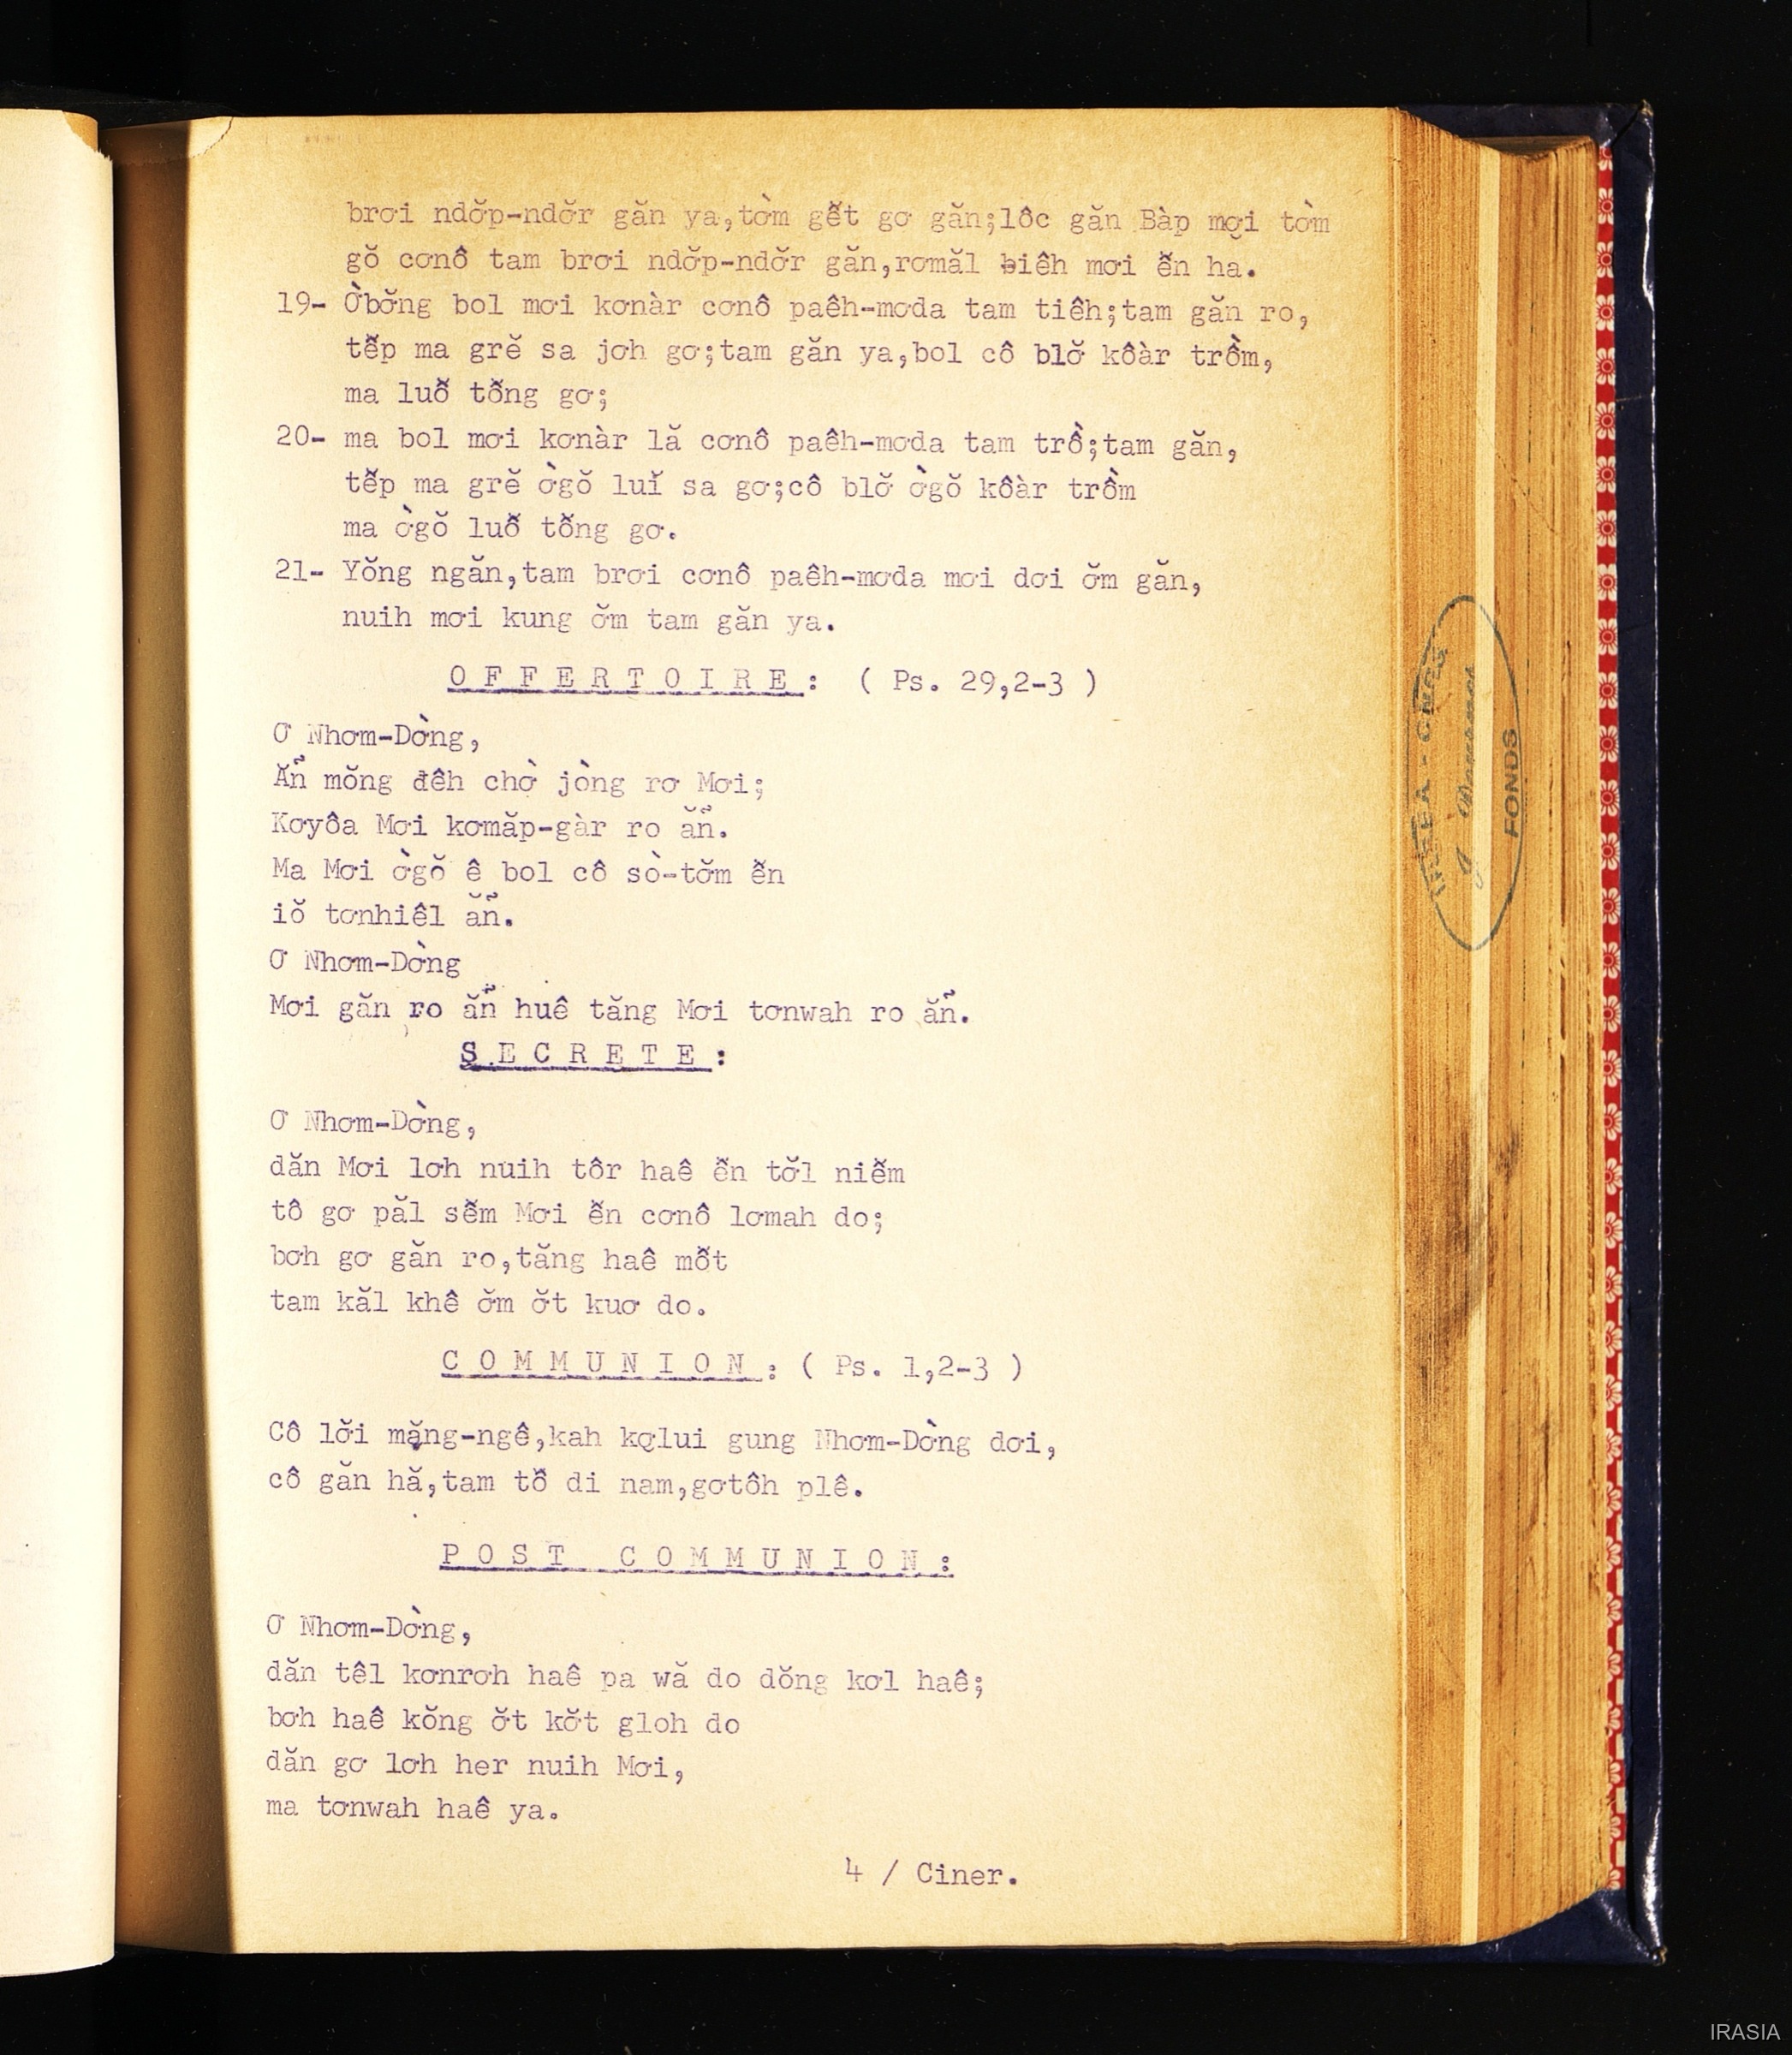 brơi ndơ̆p-ndơ̆r găn ya,tờm gê̆t gơ găn;lôc găn Bàp mơi tờm
gŏ cơnô tam brơi ndơ̆p-ndơ̆r găn,rơmăl biêh mơi ê̆n ha.
19- Ờbơ̆ng bol mơi kơnàr cơnô paêh-mơda tam tiêh;tam găn ro,
tê̆p ma grĕ sa jơh gơ;tam găn ya,bol cô blơ̆ kôàr trồm,
ma luô̆ tô̆ng gơ;
20- ma bol mơi kơnàr lă cơnô paêh-mơda tam trồ;tam găn,
tê̆p ma grĕ ờgŏ luĭ sa gơ;cô blơ̆ ờgŏ kôàr trồm
ma ờgŏ luô̆ tô̆ng gơ.
21- Yŏng ngăn,tam brơi cơnô paêh-mơda mơi dơi ơ̆m găn,
nuih mơi kung ơ̆m tam găn ya.
O F F E R T O I R E : ( Ps. 29,2-3 )
Ơ Nhơm-Dờng,
Ăn̆̃ mŏng đêh chờ jòng rơ Mơi;
Kơyôa Mơi kơmăp-gàr ro ăn̆̃.
Ma Mơi ờgŏ ê bol cô sò-tơ̆m ê̆n
iŏ tơnhiêl ăn̆̃.
Ơ Nhơm-Dờng
Mơi găn ro ăn̆̃ huê tăng Mơi tơnwah ro ăn̆̃.
S E C R E T E :
Ơ Nhơm-Dờng,
dăn Mơi lơh nuih tôr haê ê̆n tơ̆l niê̆m
tô gơ păl sê̆m Mơi ê̆n cơnô lơmah do;
bơh gơ găn ro,tăng haê mô̆t
tam kăl khê ơ̆m ơ̆t kuơ do.
C O M M U N I O N : ( Ps. 1,2-3 )
Cô lơ̆i mặng-ngê,kah kơlui gung Nhơm-Dờng dơi,
cô găn hă,tam tô̆ di nam,gơtôh plê.
P O S T C O M M U N I O N :
Ơ Nhơm-Dờng,
dăn têl kơnrơh haê pa wă do dŏng kơl haê;
bơh haê kŏng ơ̆t kơ̆t gloh do
dăn gơ lơh her nuih Mơi,
ma tơnwah haê ya.
4 / Ciner.
FONDS
IRASIA